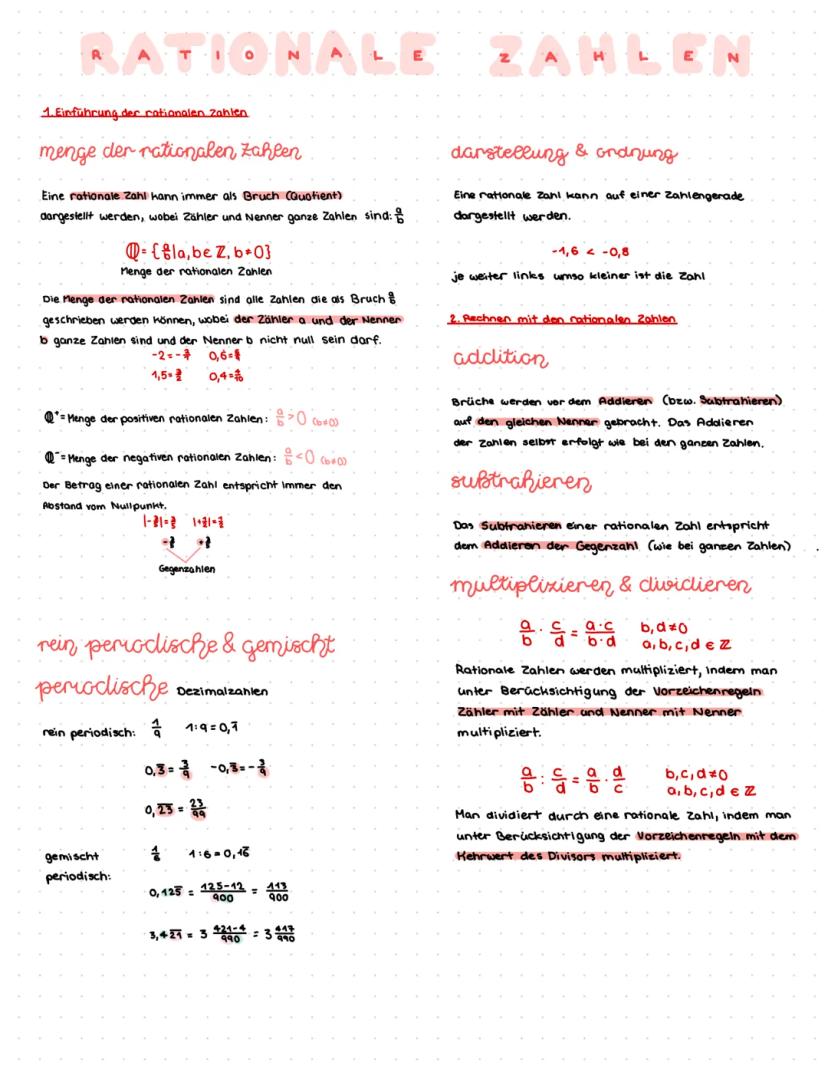 RATIONALE ZAHLEN
1. Einführung der rationalen Zahlen
menge der rationalen Zahlen
Eine rationale Zahl kann immer als Bruch (Quotient)
dargestellt werden, wobei Zähler und Nenner ganze Zahlen sind: a/b
ℚ = {a/b | a, b ∈ ℤ, b ≠ 0}
Menge der rationalen Zahlen
Die Menge der rationalen Zahlen sind alle Zahlen die als Bruch a/b
geschrieben werden können, wobei der Zähler a und der Nenner
b ganze Zahlen sind und der Nenner b nicht null sein darf.
1,5 = 3/2 0,4 = 4/10
ℚ⁺ = Menge der positiven rationalen Zahlen: a/b > 0 (b≠0)
ℚ⁻ = Menge der negativen rationalen Zahlen: a/b < 0 (b≠0)
Der Betrag einer rationalen Zahl entspricht immer den
Abstand vom Nullpunkt.
Gegenzahlen
rein periodische & gemischt
periodische Dezimalzahlen
rein periodisch: 1/9 1:9 = 0,1̅
0,3̅ = 3/9 -0,3̅ = -3/9
0,2̅3̅ = 23/99
gemischt
periodisch:
1/6 1:6 = 0,16̅
0,125̅ = 125-12/900 = 113/900
3,42̅1̅ = 3 421-4/990 = 3 417/990
darstellung & ordnung
Eine rationale Zahl kann auf einer Zahlengerade
dargestellt werden.
-1,6 < -0,8
je weiter links umso kleiner ist die Zahl
2. Rechnen mit den rationalen Zahlen
addition
Brüche werden vor dem Addieren (bzw. Subtrahieren)
auf den gleichen Nenner gebracht. Das Addieren
der Zahlen selbst erfolgt wie bei den ganzen Zahlen.
subtrahieren
Das Subtrahieren einer rationalen Zahl entspricht
dem Addieren der Gegenzahl (wie bei ganzen Zahlen)
multiplizieren & dividieren
a/b · c/d = a·c/b·d b,d≠0
a,b,c,d ∈ ℤ
Rationale Zahlen werden multipliziert, indem man
unter Berücksichtigung der Vorzeichenregeln
Zähler mit Zähler und Nenner mit Nenner
multipliziert.
a/b : c/d = a/b · d/c b,c,d≠0
a,b,c,d ∈ ℤ
Man dividiert durch eine rationale Zahl, indem man
unter Berücksichtigung der Vorzeichenregeln mit dem
Kehrwert des Divisors multipliziert.